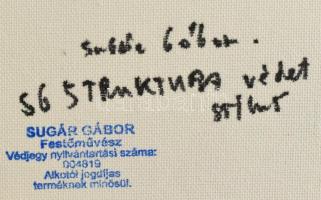 Sugár Gábor.
SG STRUKTURA védett
SUGÁR GÁBOR
Festőművész
Védjegy nyilvántartási száma:
004819
Alkotói jogdíjas
terméknek minősül.